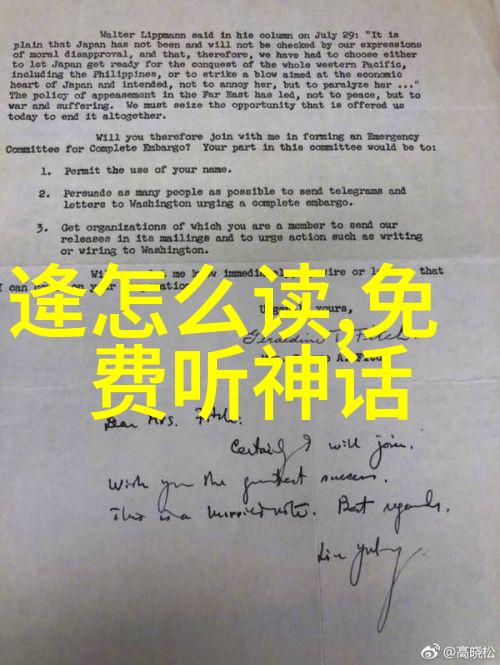 Walter Lippmann said in his column on July 29: "It is
plain that Japan has not been and will not be checked by our expressions
of moral disapproval, and that, therefore, we have had to choose either
to let Japan get ready for the conquest of the whole western Pacific,
including the Philippines, or to strike a blow aimed at the economic
heart of Japan and intended, not to annoy her, but to paralyze her ..."
The policy of appeasement in the Far East has led, not to peace, but to
war and suffering. We must seize the opportunity that is offered us
today to end it altogether.
Will you therefore join with me in forming an Emergency
Committee for Complete Embargo? Your part in this committee would be to:
1. Permit the use of your name.
2. Persuade as many people as possible to send telegrams and
letters to Washington urging a complete embargo.
3. Get organizations of which you are a member to send our
releases in its mailings and to urge action such as writing
or wiring to Washington.
me know immediately wire or that
I can on your
逄怎么读,免
费听神话
yours,
Geraldine T. Fitch.
A.
Dear Mrs. Fitch:
Certainly I will join.
Wish you the greatest success.
This is a hurried note. Best regards.
Lin Yutang
@高晓松